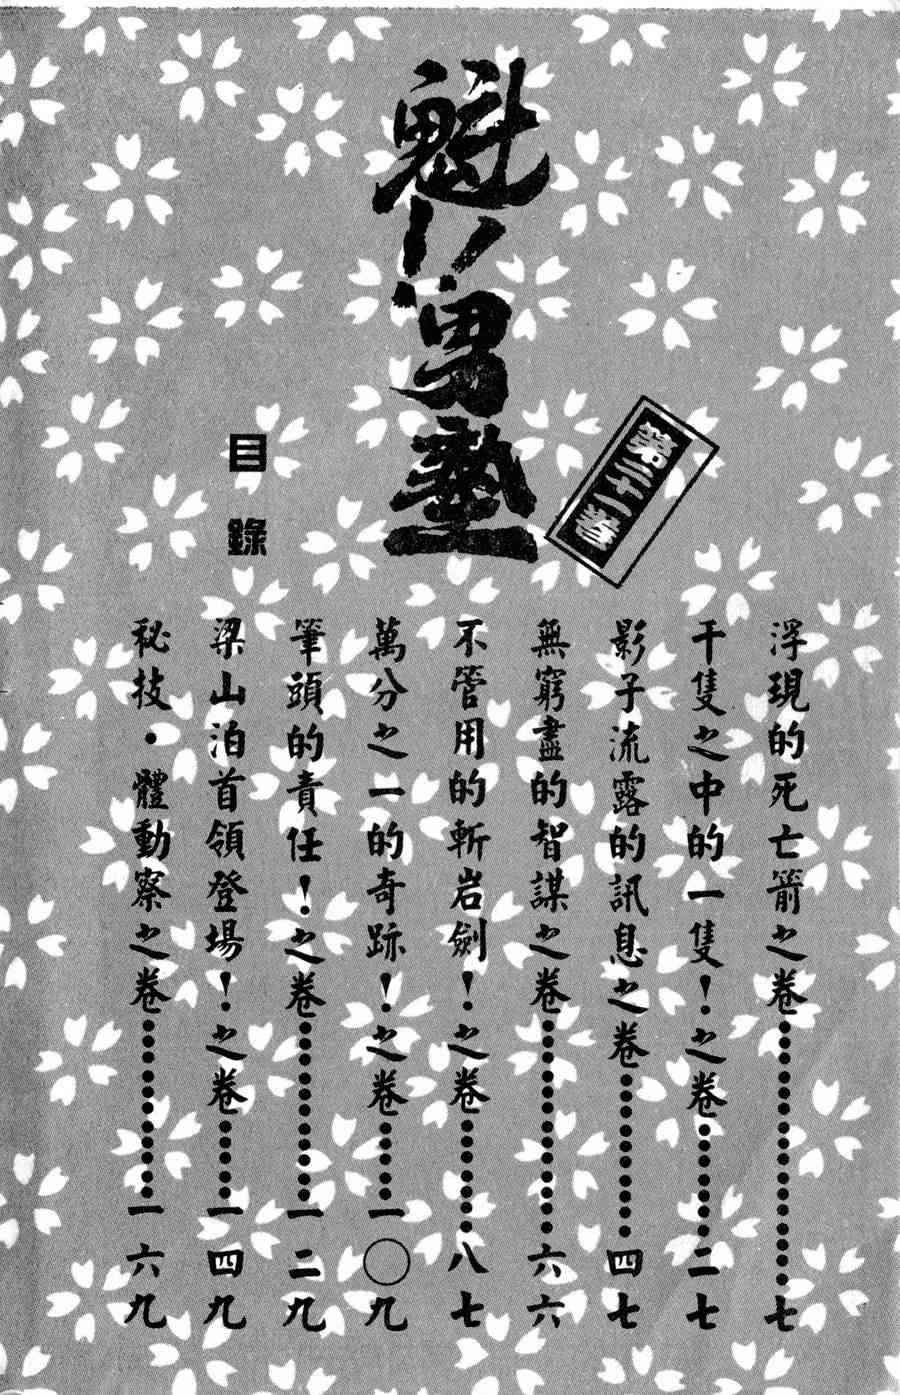 魁!!男塾
第二十一卷
目錄
浮現的死亡箭之卷……………七
千隻之中的一隻！之卷………二七
影子流露的訊息之卷…………四七
無窮盡的智謀之卷……………六六
不管用的斬岩劍！之卷………八七
萬分之一的奇跡！之卷………一〇九
筆頭的責任！之卷……………一二九
梁山泊首領登場！之卷………一四九
秘技・體動察之卷……………一六九